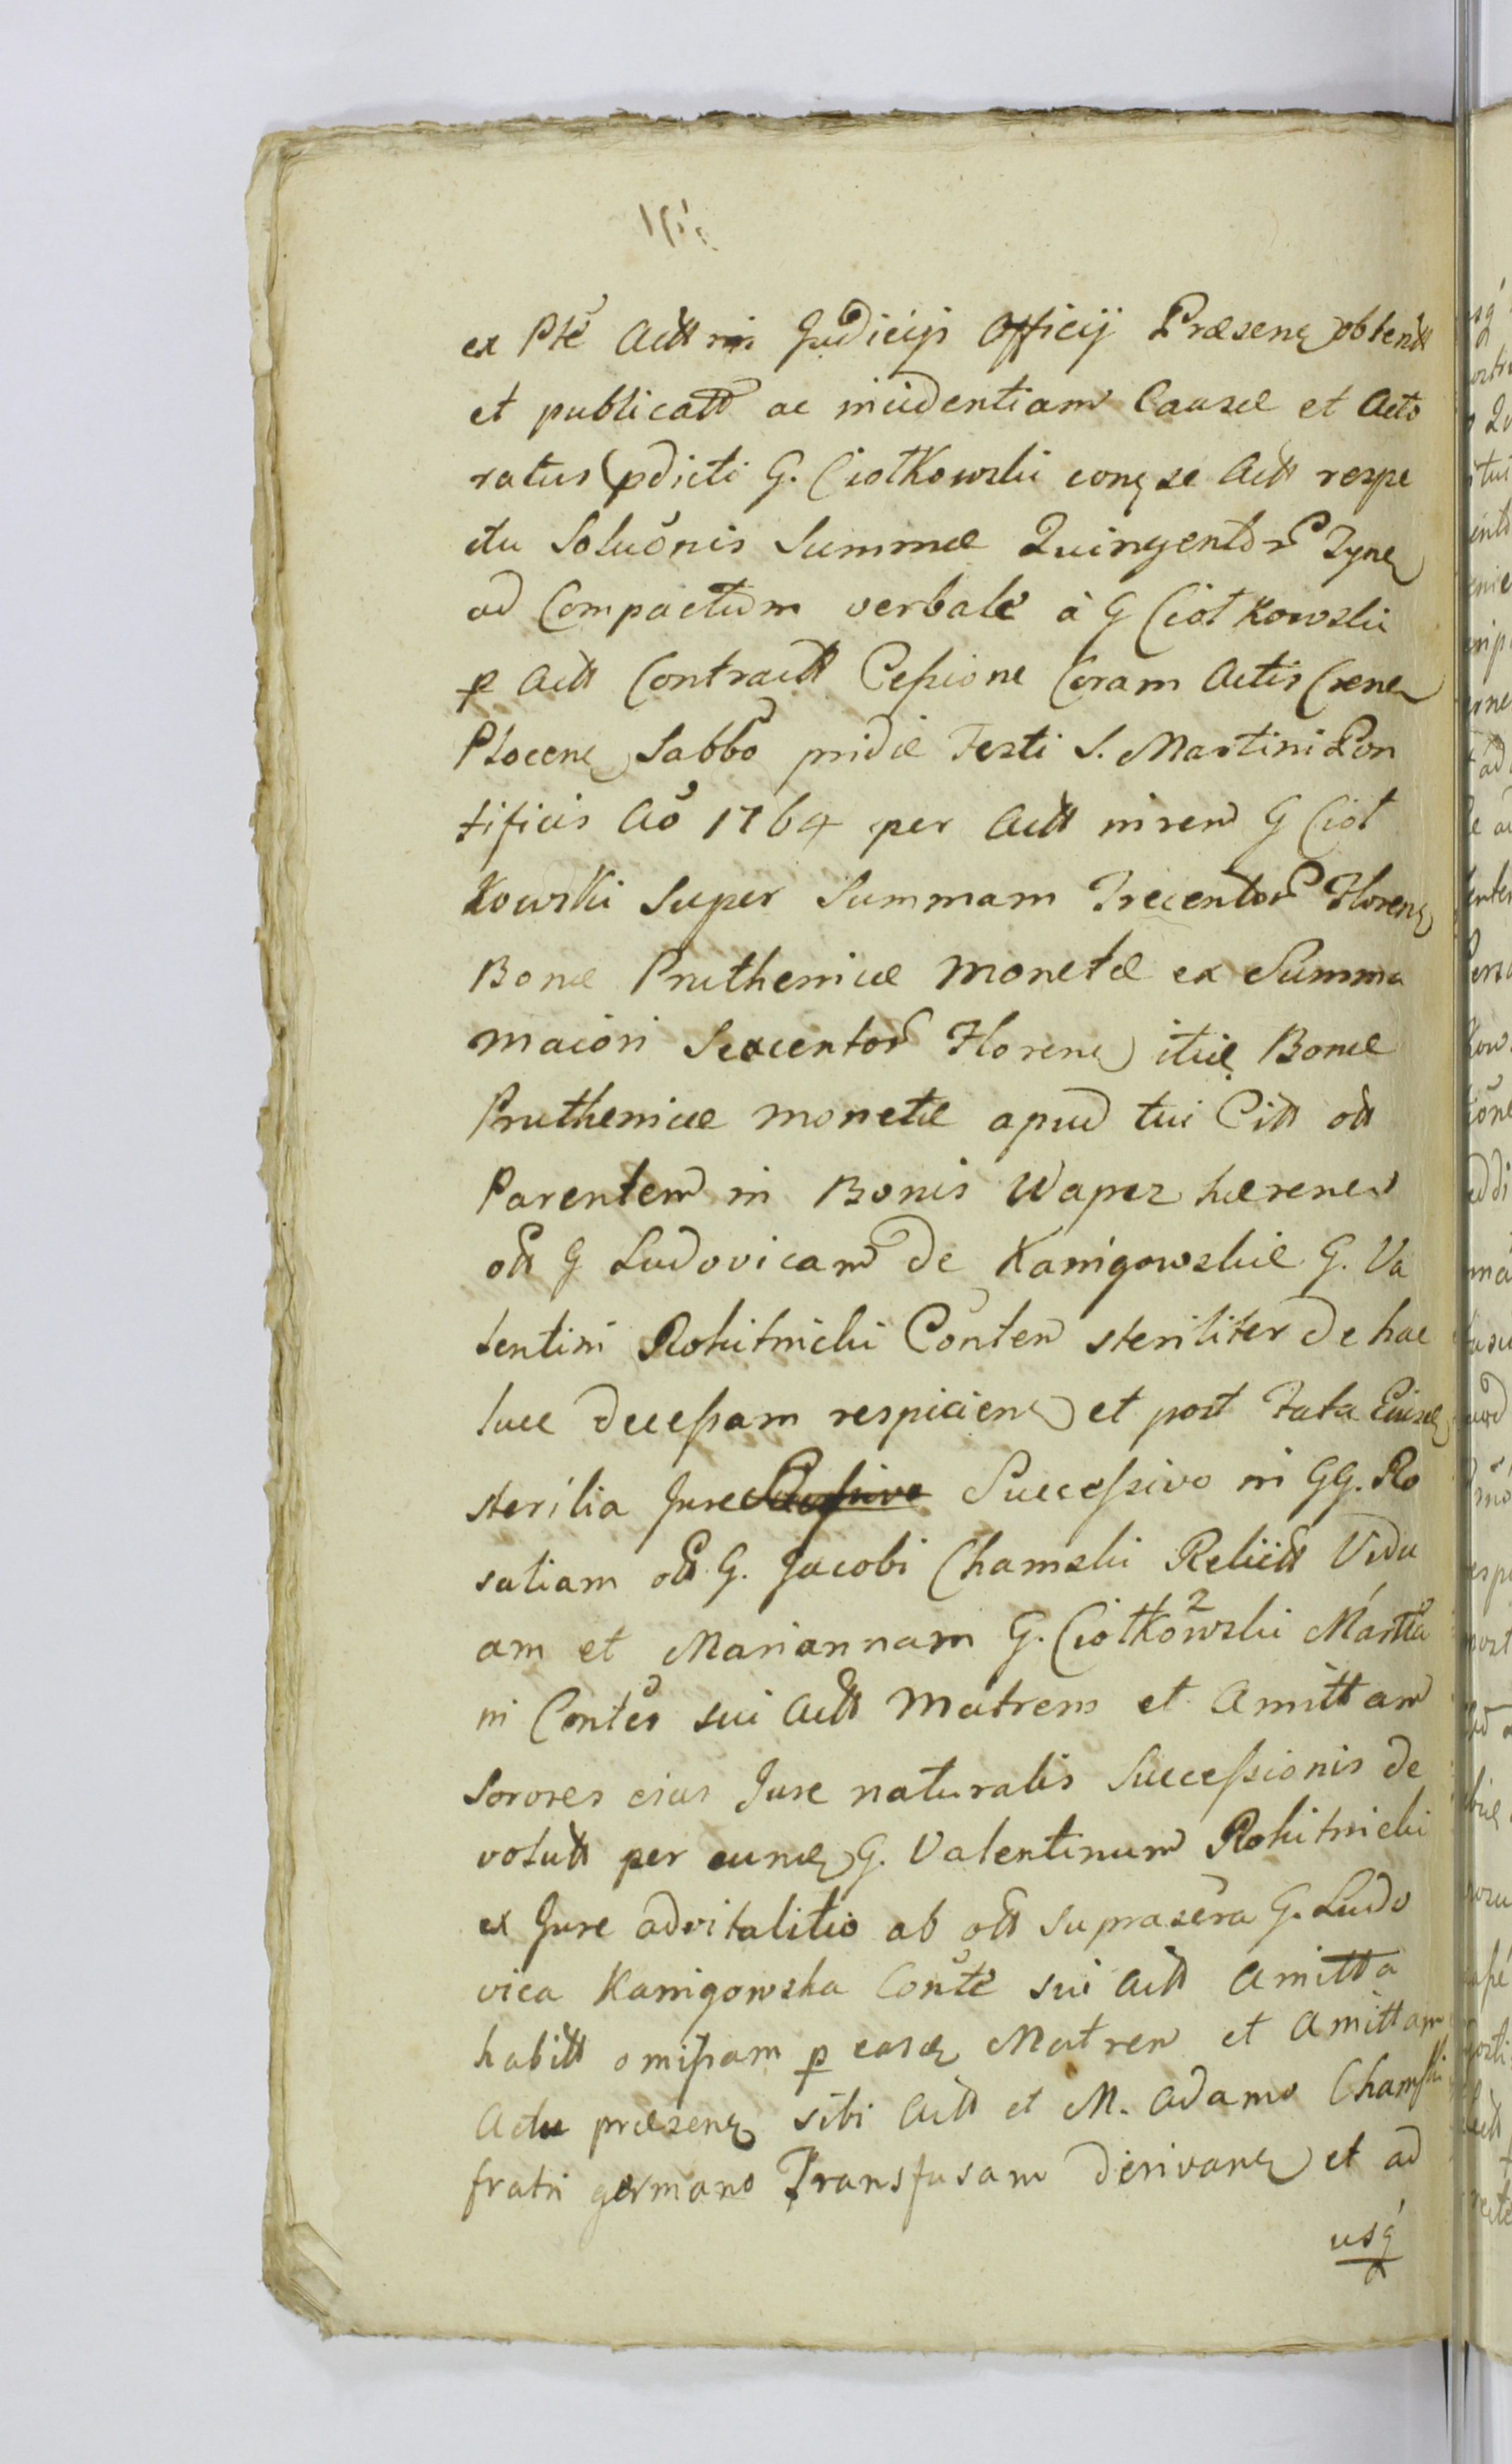 ex Ptē Actt in Judicijs Officij Præsenę obtentt
et publicatt ac incidentiam Causæ et Acto
ratus pdicti G. Ciotkowski conę se Actt respe
ctu Soluōnis Summæ Quingentor Tynę
ad Compactum verbale à G Ciotkowski
p Actt Contractt Cessione Coram Actis Crenę
Plocenę Sabbo pridie Festi S. Martini Pon
tificis Ao 1764 per Actt in rem G Ciot
kowski Super Summam Trecentor Florenę
Bonæ Pruthenicæ Monetæ ex Summa
maiori Sexcentor Florenę itię Bonæ
Pruthenicæ monetæ apud tui Citt ott
Parentem in Bonis Wapez hærenę
ott G Ludovicam de Kanigowskie G. Va
lentini Rokitnicki Conten steriliter de hac
luce decessam respicienę et post Fata Eiusę
sterilia Jure Successivo in GG. Ro
saliam ott G. Jacobi Chamski Relictt Vidu
am et Mariannam G. Ciotkowski 2 Martta
ni Contes sui Actt Matrem et Amittam
Sorores eius Jure naturalis Successionis de
volutt per eunę G. Valentinum Rokitnicki
ex Jure advitalitio ab ott suprasēra G. Ludo
vica Kanigowska Conte sui Actt Amitta
habitt omissam p easę Matrem et Amittam
Actu præsenę sibi Actt et M. Adamo Chamski
fratri germano Transfusam derivanę et ad
usq́